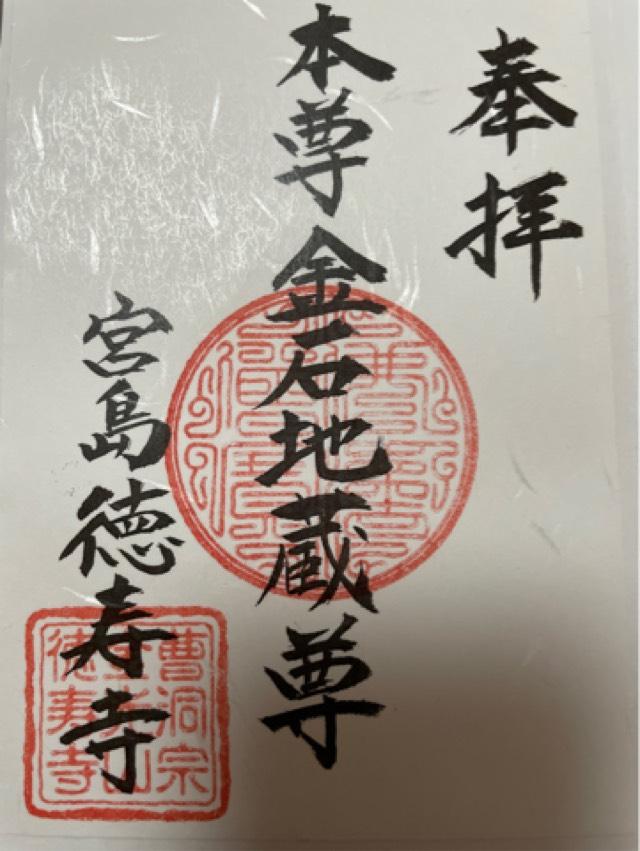 奉拝
本尊金石地蔵尊
宮島徳寿寺
曹洞宗
徳寿寺